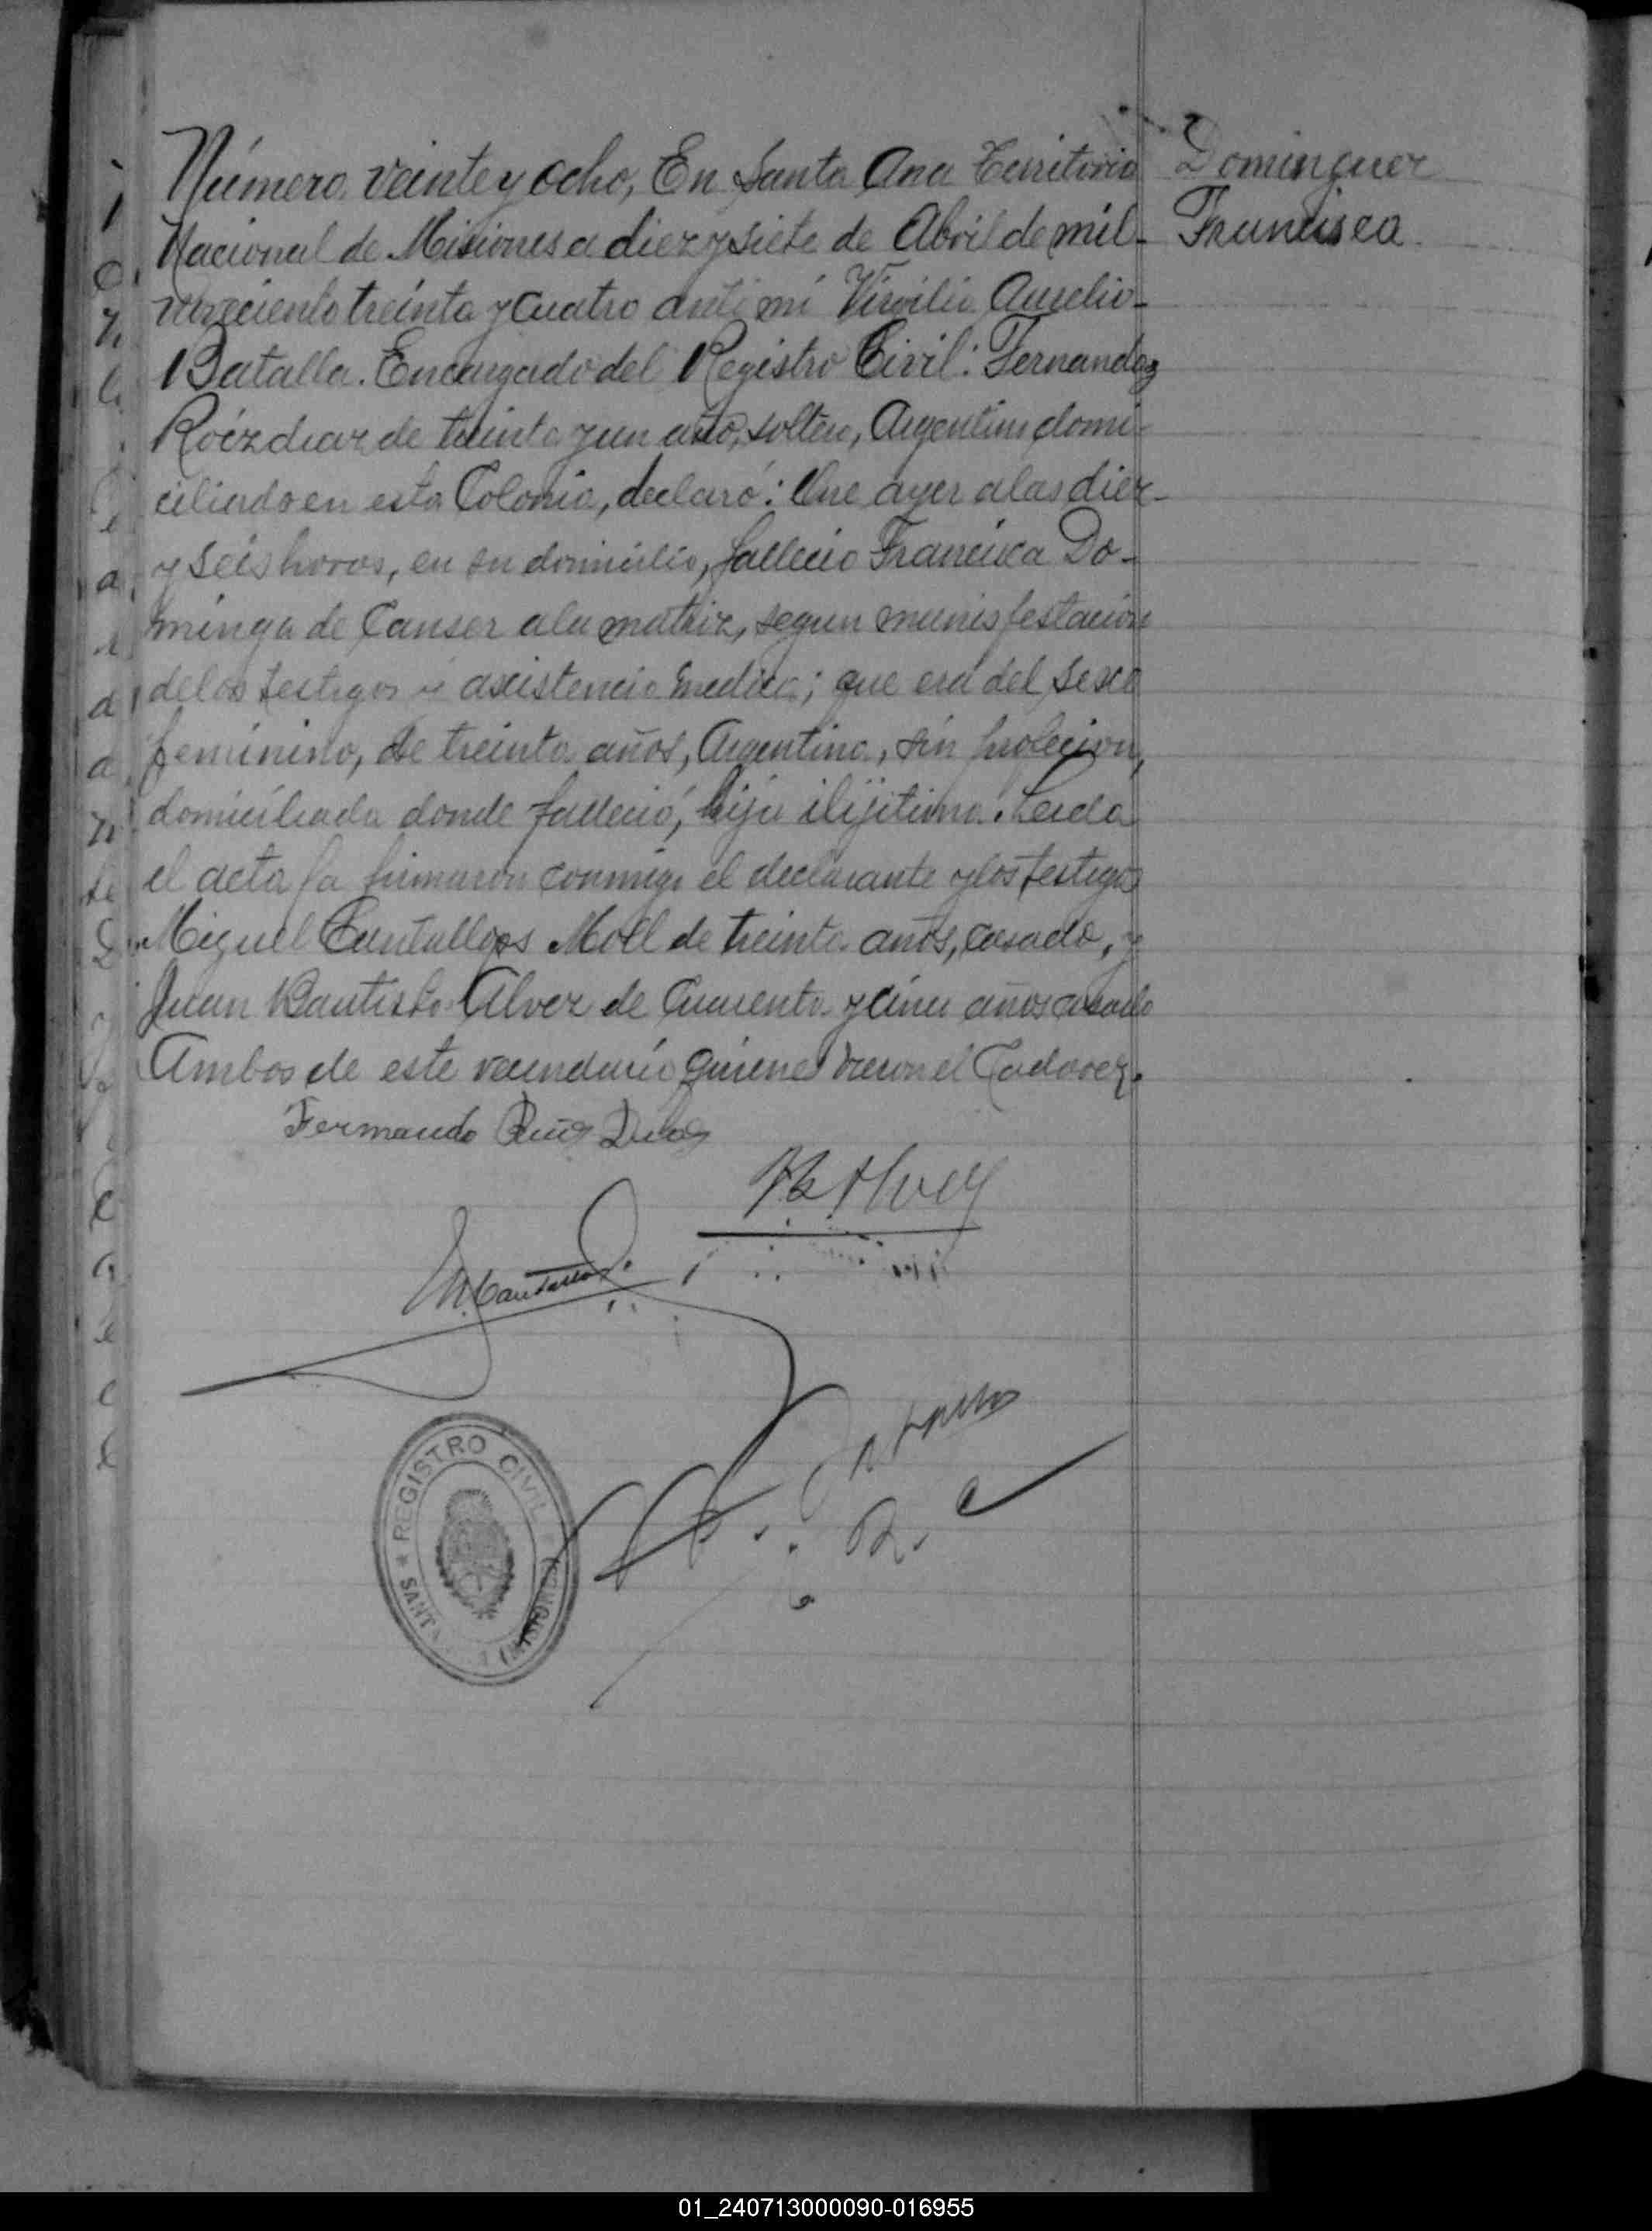 Número veinte y ocho, En Santa Ana Territorio
Nacional de Misiones a diez y siete de Abril de mil-
novecientos treinta y cuatro ante mí Virgilio Aurelio-
Batalla. Encargado del Registro Civil: Fernandez
de treinta y un año, soltero, Argentino domi-
ciliado en esta Colonia, declaró: Que ayer a las diez-
y seis horas, en su domicilio, fallecio Francisca Do-
minga de Canser a la matriz, segun manisfestacion
de los testigos asistencia medica; que era del sexo
femenino, de treinta años, Argentina, sin profecion,
domiciliada donde falleció, hija ilijitima. Leida
el acta la firmaron conmigo el declarante y los testigos
Miguel Cantallops Moll de treinta años, casado, y
Juan Bautista Alvez de Cuarenta y cinco años casado
Ambos de este vecindario quienes vieron el Cadaver.
Dominguez
Francisca
Fernando
M. Cantallops
REGISTRO CIVIL
SANTA (MISIONES)
01_240713000090-016955